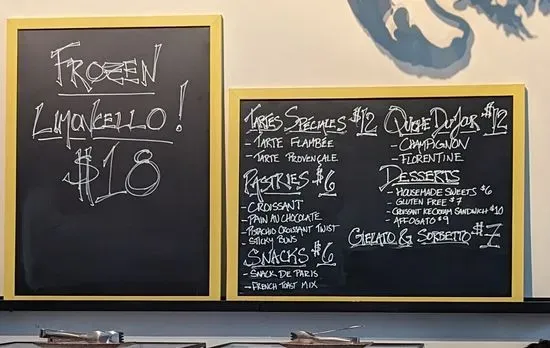 FROZEN
LIMONCELLO!
$18
TARTES SPÉCIALES $12
- TARTE FLAMBÉE
- TARTE PROVENÇALE
PASTRIES $6
- CROISSANT
- PAIN AU CHOCOLATE
- PISTACHIO CROISSANT TWIST
- STICKY BUNS
SNACKS $6
- SNACK DE PARIS
- FRENCH TOAST MIX
QUICHE DU JOUR $12
- CHAMPIGNON
- FLORENTINE
DESSERTS
- HOUSEMADE SWEETS $6
- GLUTEN FREE $7
- CROISSANT ICE CREAM SANDWICH $10
- AFFOGATO $9
GELATO & SORBETTO $7